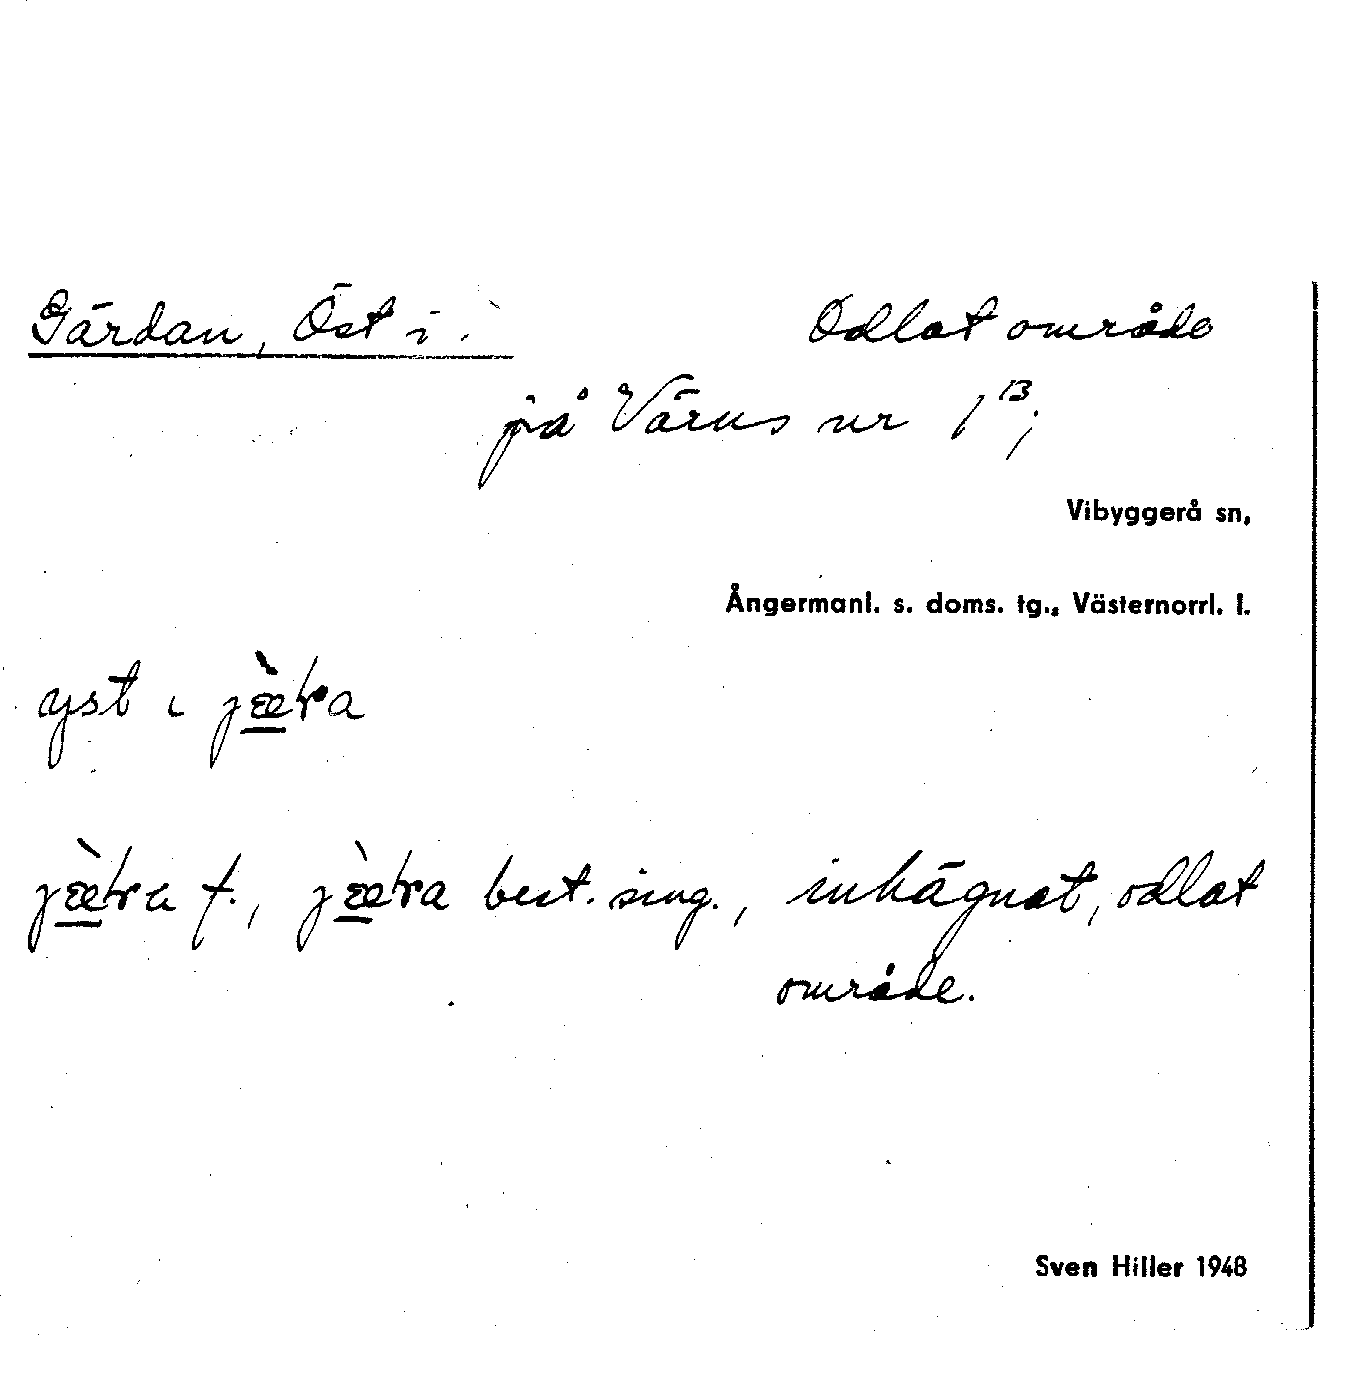 Gärdan, Öst i. Odlat område
på Värns nr 1ᴮ;
Vibyggerå sn,
Ångermanl. s. doms. tg., Västernorrl. l.
f., best. sing., inhägnat, odlat
område.
Sven Hiller 1948